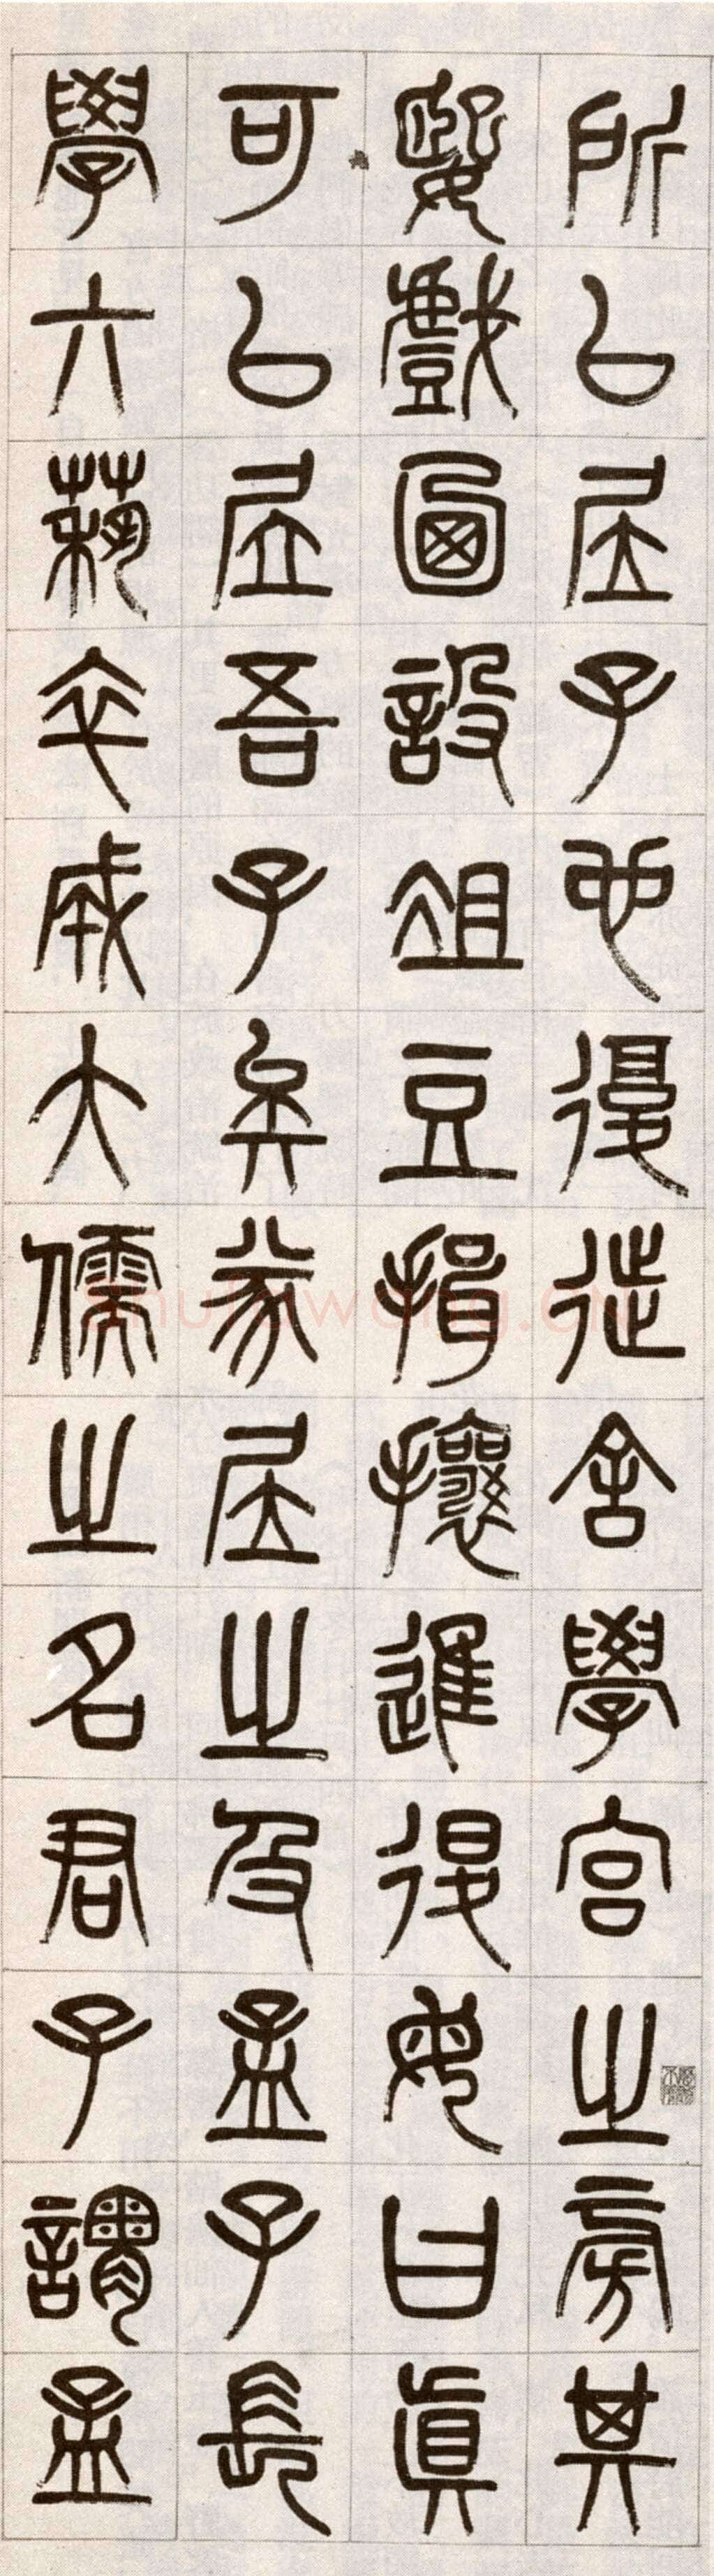 所以居子也復徙舍學宮之旁其
媐戲迺設俎豆揖攘進退母曰真
可以居吾子矣㒸居之及孟子長
學六蓺卒成大儒之名君子謂孟
shufawang.CN